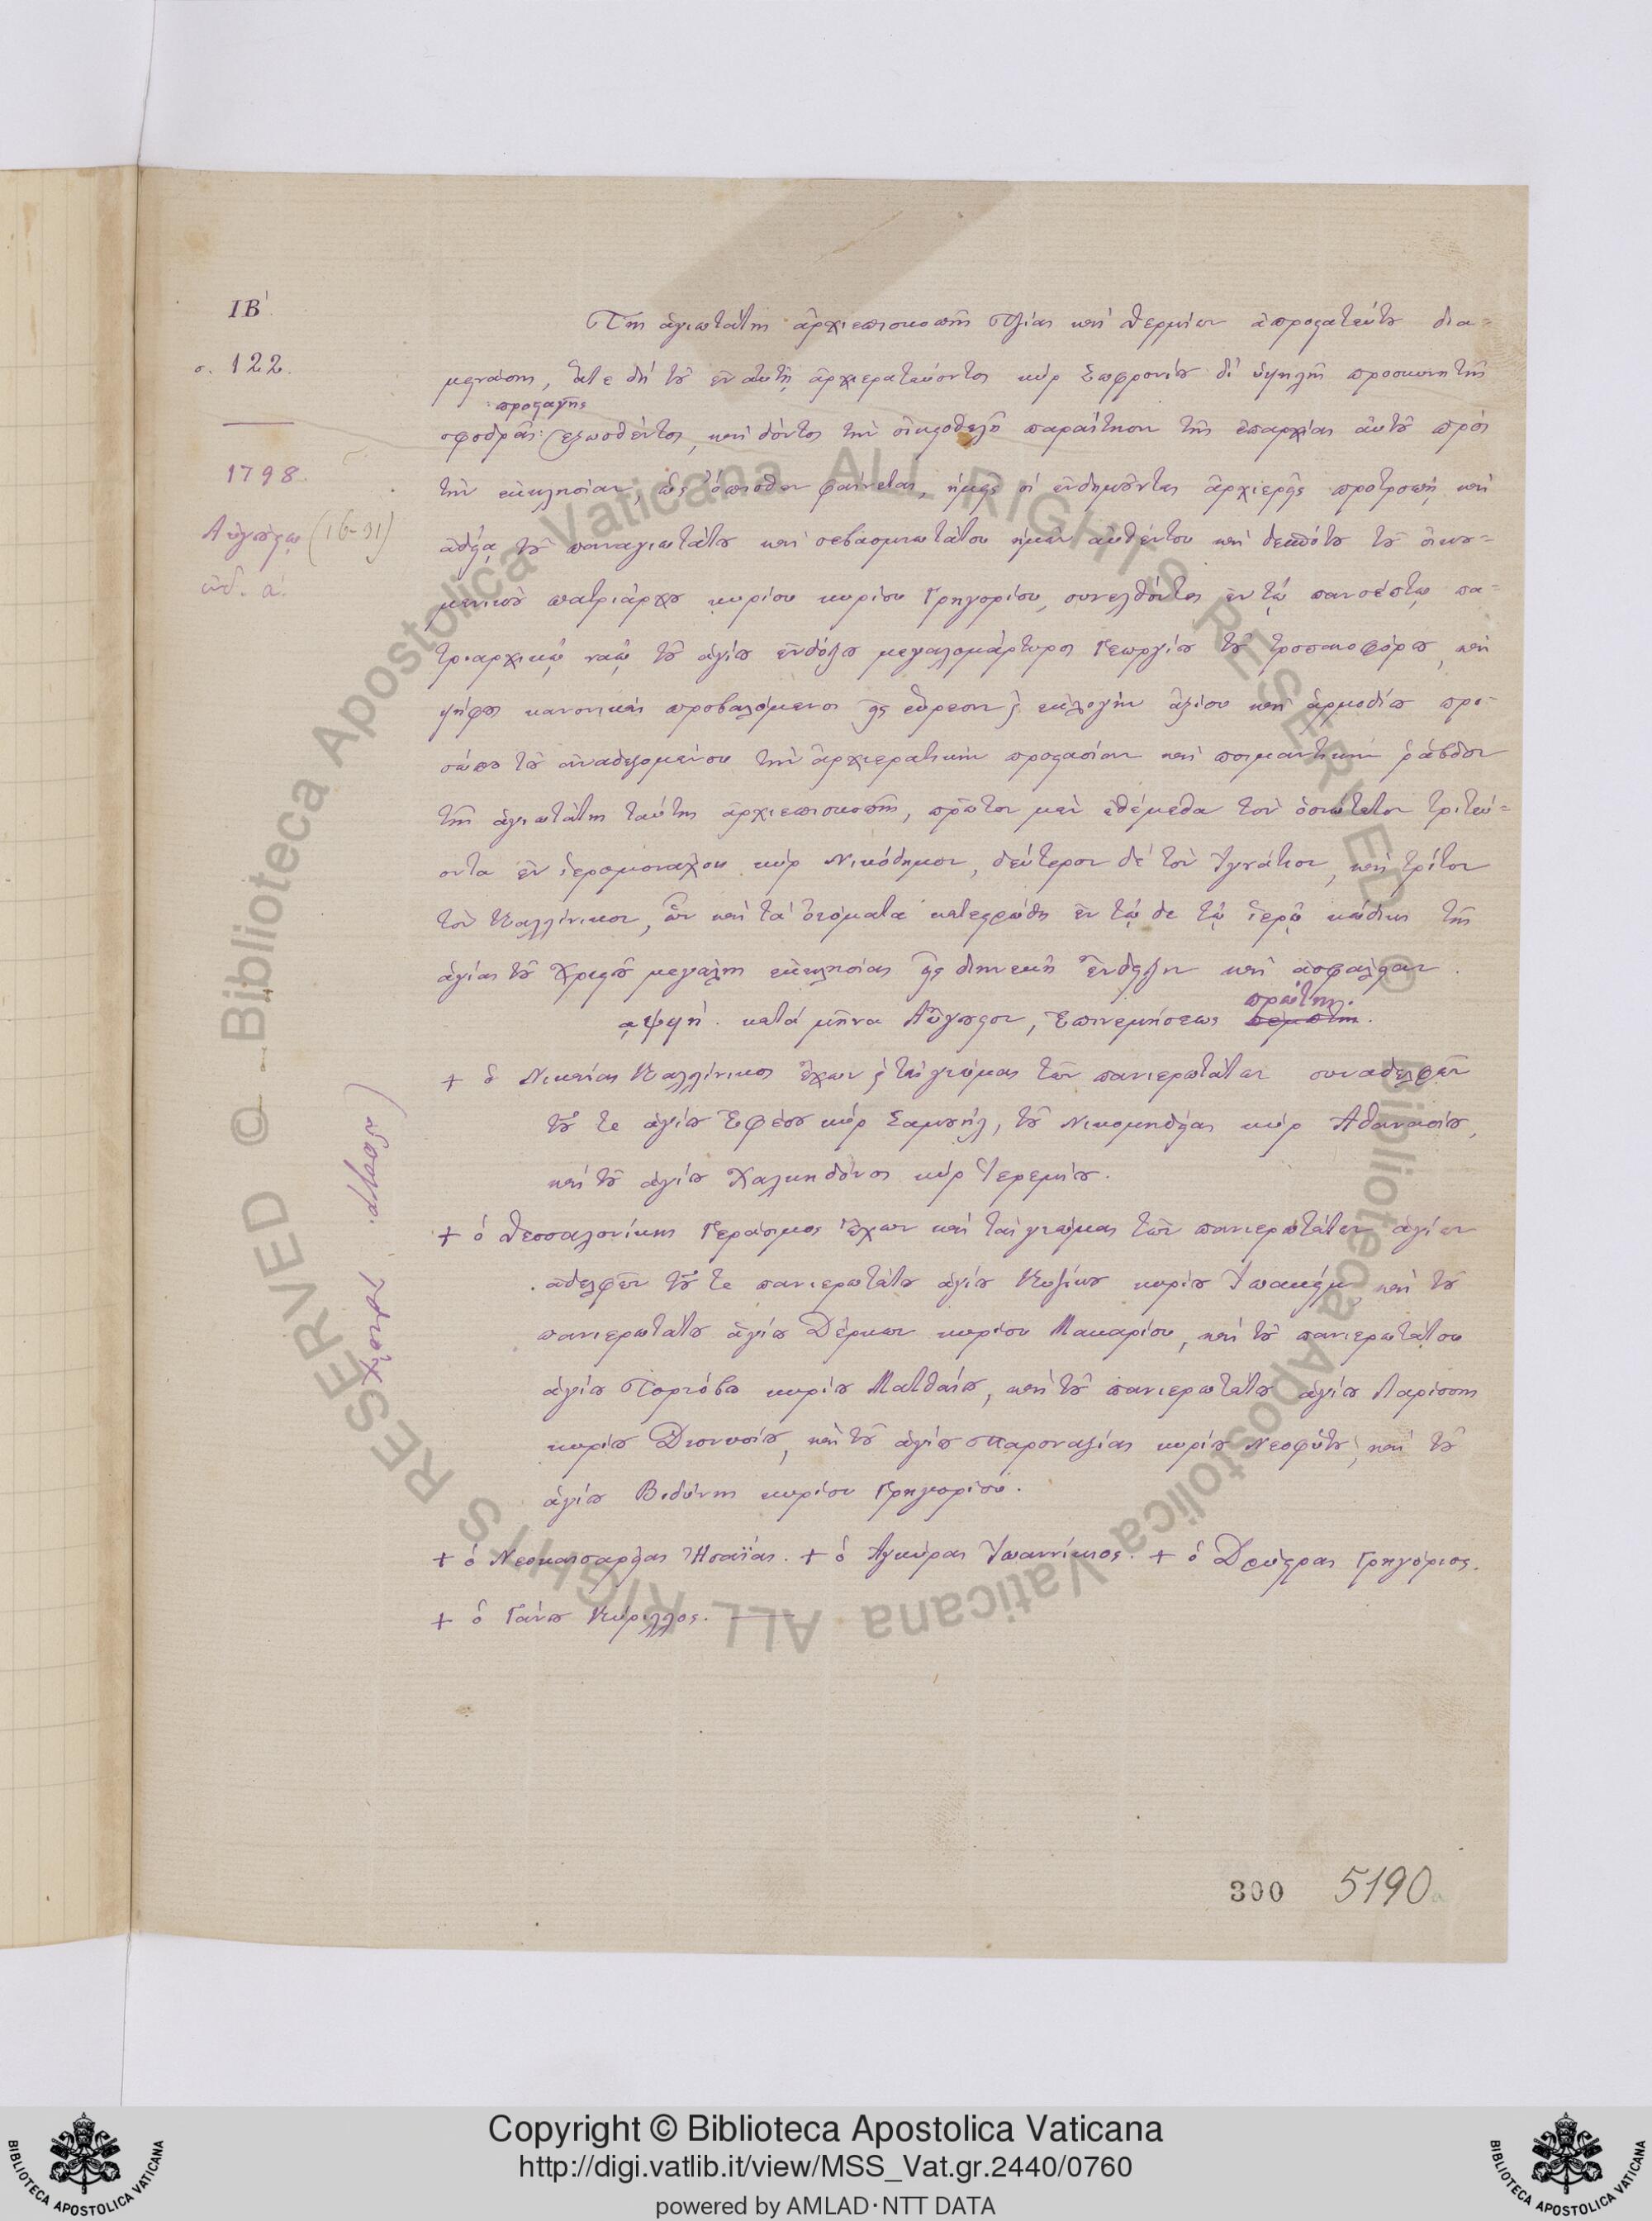 ΙΒ'
σ. 122.
1798.
Αὐγούστῳ (16-31)
ἰνδ. α΄.
Τῆς ἁγιωτάτης ἀρχιεπισκοπῆς Τζίας καὶ Θερμίων ἀπροστατεύτου δια-
μεινάσης, ἅτε δὴ τοῦ ἐν αὐτῇ ἀρχιερατεύοντος κὺρ Σωφρονίου δι' ὑψηλῆς προσκυνητῆς
προσταγῆς
σφοδρᾶς ἐξωσθέντος, καὶ δόντος τὴν οἰκειοθελῆ παραίτησιν τῆς ἐπαρχίας αὐτοῦ πρὸς
τὴν ἐκκλησίαν, ὡς ὄπισθεν φαίνεται, ἡμεῖς οἱ ἐνδημοῦντες ἀρχιερεῖς προτροπῇ καὶ
ἀδείᾳ τοῦ παναγιωτάτου καὶ σεβασμιωτάτου ἡμῶν αὐθέντου καὶ δεσπότου τοῦ οἰκου-
μενικοῦ πατριάρχου κυρίου κυρίου Γρηγορίου, συνελθόντες ἐν τῷ πανσέπτῳ πα-
τριαρχικῷ ναῷ τοῦ ἁγίου ἐνδόξου μεγαλομάρτυρος Γεωργίου τοῦ τροπαιοφόρου, καὶ
ψήφους κανονικὰς προβαλόμενοι εἰς εὕρεσιν καὶ ἐκλογὴν ἀξίου καὶ ἁρμοδίου προ-
σώπου τοῦ ἀναδεξομένου τὴν ἀρχιερατικὴν προστασίαν καὶ ποιμαντικὴν ῥάβδον
τῆς ἁγιωτάτης ταύτης ἀρχιεπισκοπῆς, πρῶτον μὲν ἐθέμεθα τὸν ὁσιώτατον τριτεύ-
οντα ἐν ἱερομονάχοις κὺρ Νικόδημον, δεύτερον δὲ τὸν Ἰγνάτιον, καὶ τρίτον
τὸν Καλλίνικον, ὧν καὶ τὰ ὀνόματα κατεστρώθη ἐν τῷδε τῷ ἱερῷ κώδικι τῆς
ἁγίας τοῦ Χριστοῦ μεγάλης ἐκκλησίας εἰς διηνεκῆ ἔνδειξιν καὶ ἀσφάλειαν.
πρώτης.
͵αψϟη΄. κατὰ μῆνα Αὔγουστον, Ἐπινεμήσεως πέμπτης.
+ ὁ Νικαίας Καλλίνικος ἔχων καὶ τὰς γνώμας τῶν πανιερωτάτων συναδελφῶν
τοῦ τε ἁγίου Ἐφέσου κὺρ Σαμουήλ, τοῦ Νικομηδείας κὺρ Ἀθανασίου,
καὶ τοῦ ἁγίου Χαλκηδόνος κὺρ Ἱερεμίου.
+ ὁ Θεσσαλονίκης Γεράσιμος ἔχων καὶ τὰς γνώμας τῶν πανιερωτάτων ἁγίων
ἀδελφῶν τοῦ τε πανιερωτάτου ἁγίου Κυζίκου κυρίου Ἰωακείμ, καὶ τοῦ
πανιερωτάτου ἁγίου Δέρκων κυρίου Μακαρίου, καὶ τοῦ πανιερωτάτου
ἁγίου Τορνόβου κυρίου Ματθαίου, καὶ τοῦ πανιερωτάτου ἁγίου Λαρίσσης
κυρίου Διονυσίου, καὶ τοῦ ἁγίου Παροναξίας κυρίου Νεοφύτου, καὶ τοῦ
ἁγίου Βιδύνης κυρίου Γρηγορίου.
+ ὁ Νεοκαισαρείας Ἡσαΐας. + ὁ Ἀγκύρας Ἰωαννίκιος. + ὁ Δρύστρας Γρηγόριος.
+ ὁ Γάνου Κύριλλος.
300 5190a
Copyright © Biblioteca Apostolica Vaticana
http://digi.vatlib.it/view/MSS_Vat.gr.2440/0760
powered by AMLAD·NTT DATA
BIBLIOTECA APOSTOLICA VATICANA
BIBLIOTECA APOSTOLICA VATICANA
© Biblioteca Apostolica Vaticana ALL RIGHTS RESERVED © Biblioteca Apostolica Vaticana ALL RIGHTS RESERVED